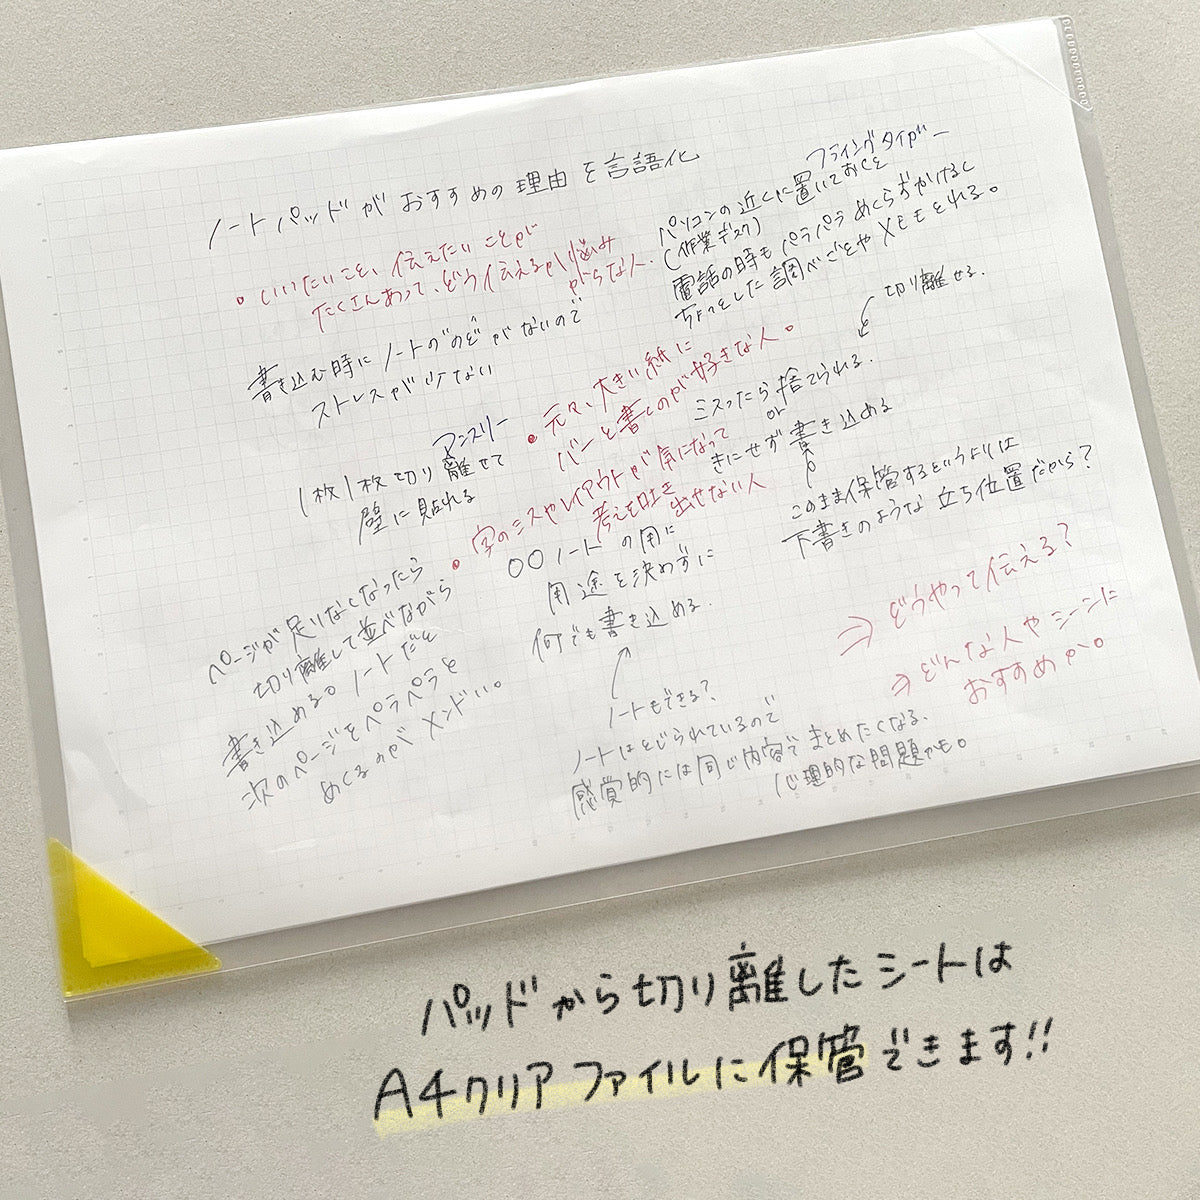 ノートパッドがおすすめの理由を言語化
・いいたいこと、伝えたいことが
たくさんあって、どう伝えるか悩み
がちな人.
書き込む時にノートの"のど"がないので
ストレスが少ない
アンスリー
1枚1枚切り離せて
壁に貼れる
ページが足りなくなったら
切り離して並べながら
書き込める。ノートだと
次のページをペラペラと
めくるのがメンドい。
フライングタイガー
パソコンの近くに置いておくと
(作業デスク)
電話の時もパラパラめくらずかけるし
ちょっとした調べごとやメモをとれる。
切り離せる.
・元々、大きい紙に
バーと書くのが好きな人。
ミスったら捨てられる.
or
きにせず書き込める
このまま保管するというよりは
下書きのような立ち位置だから?
・字のミスやレイアウトが気になって
考えを吐き
出せない人
○○ノートの用に
用途を決めずに
何でも書き込める.
ノートもできる?
ノートはとじられているので
感覚的には同じ内容でまとめたくなる.
心理的な問題かも。
⇒どうやって伝える?
⇒どんな人やシーンに
おすすめか。
パッドから切り離したシートは
A4クリアファイルに保管できます!!